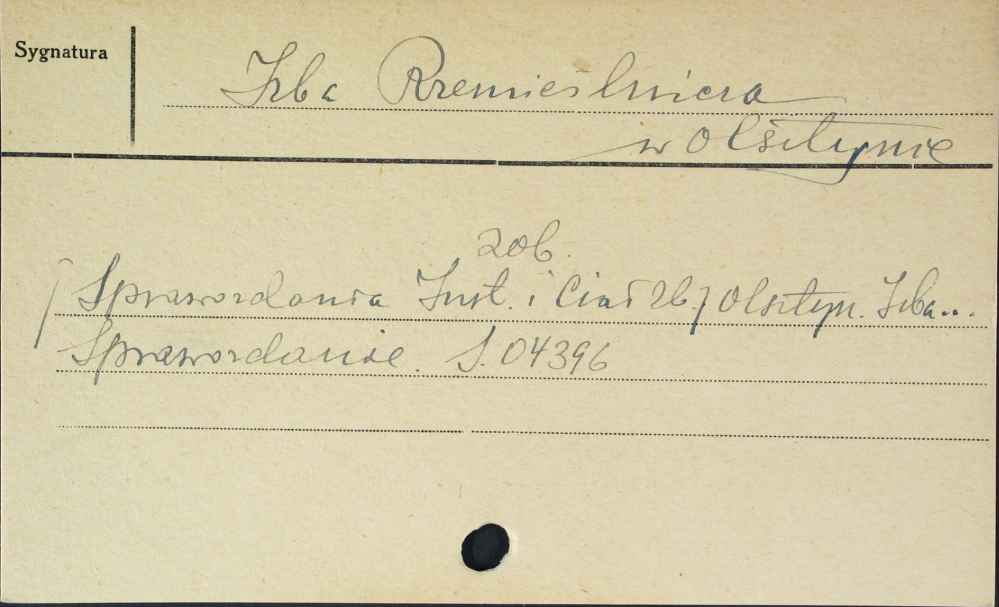 Sygnatura
Izba Rzemieślnicza
w Olsztynie
zob.
[Sprawozdania Inst. i Ciał Zb.] Olsztyn. Izba...
Sprawozdanie. S. 04396